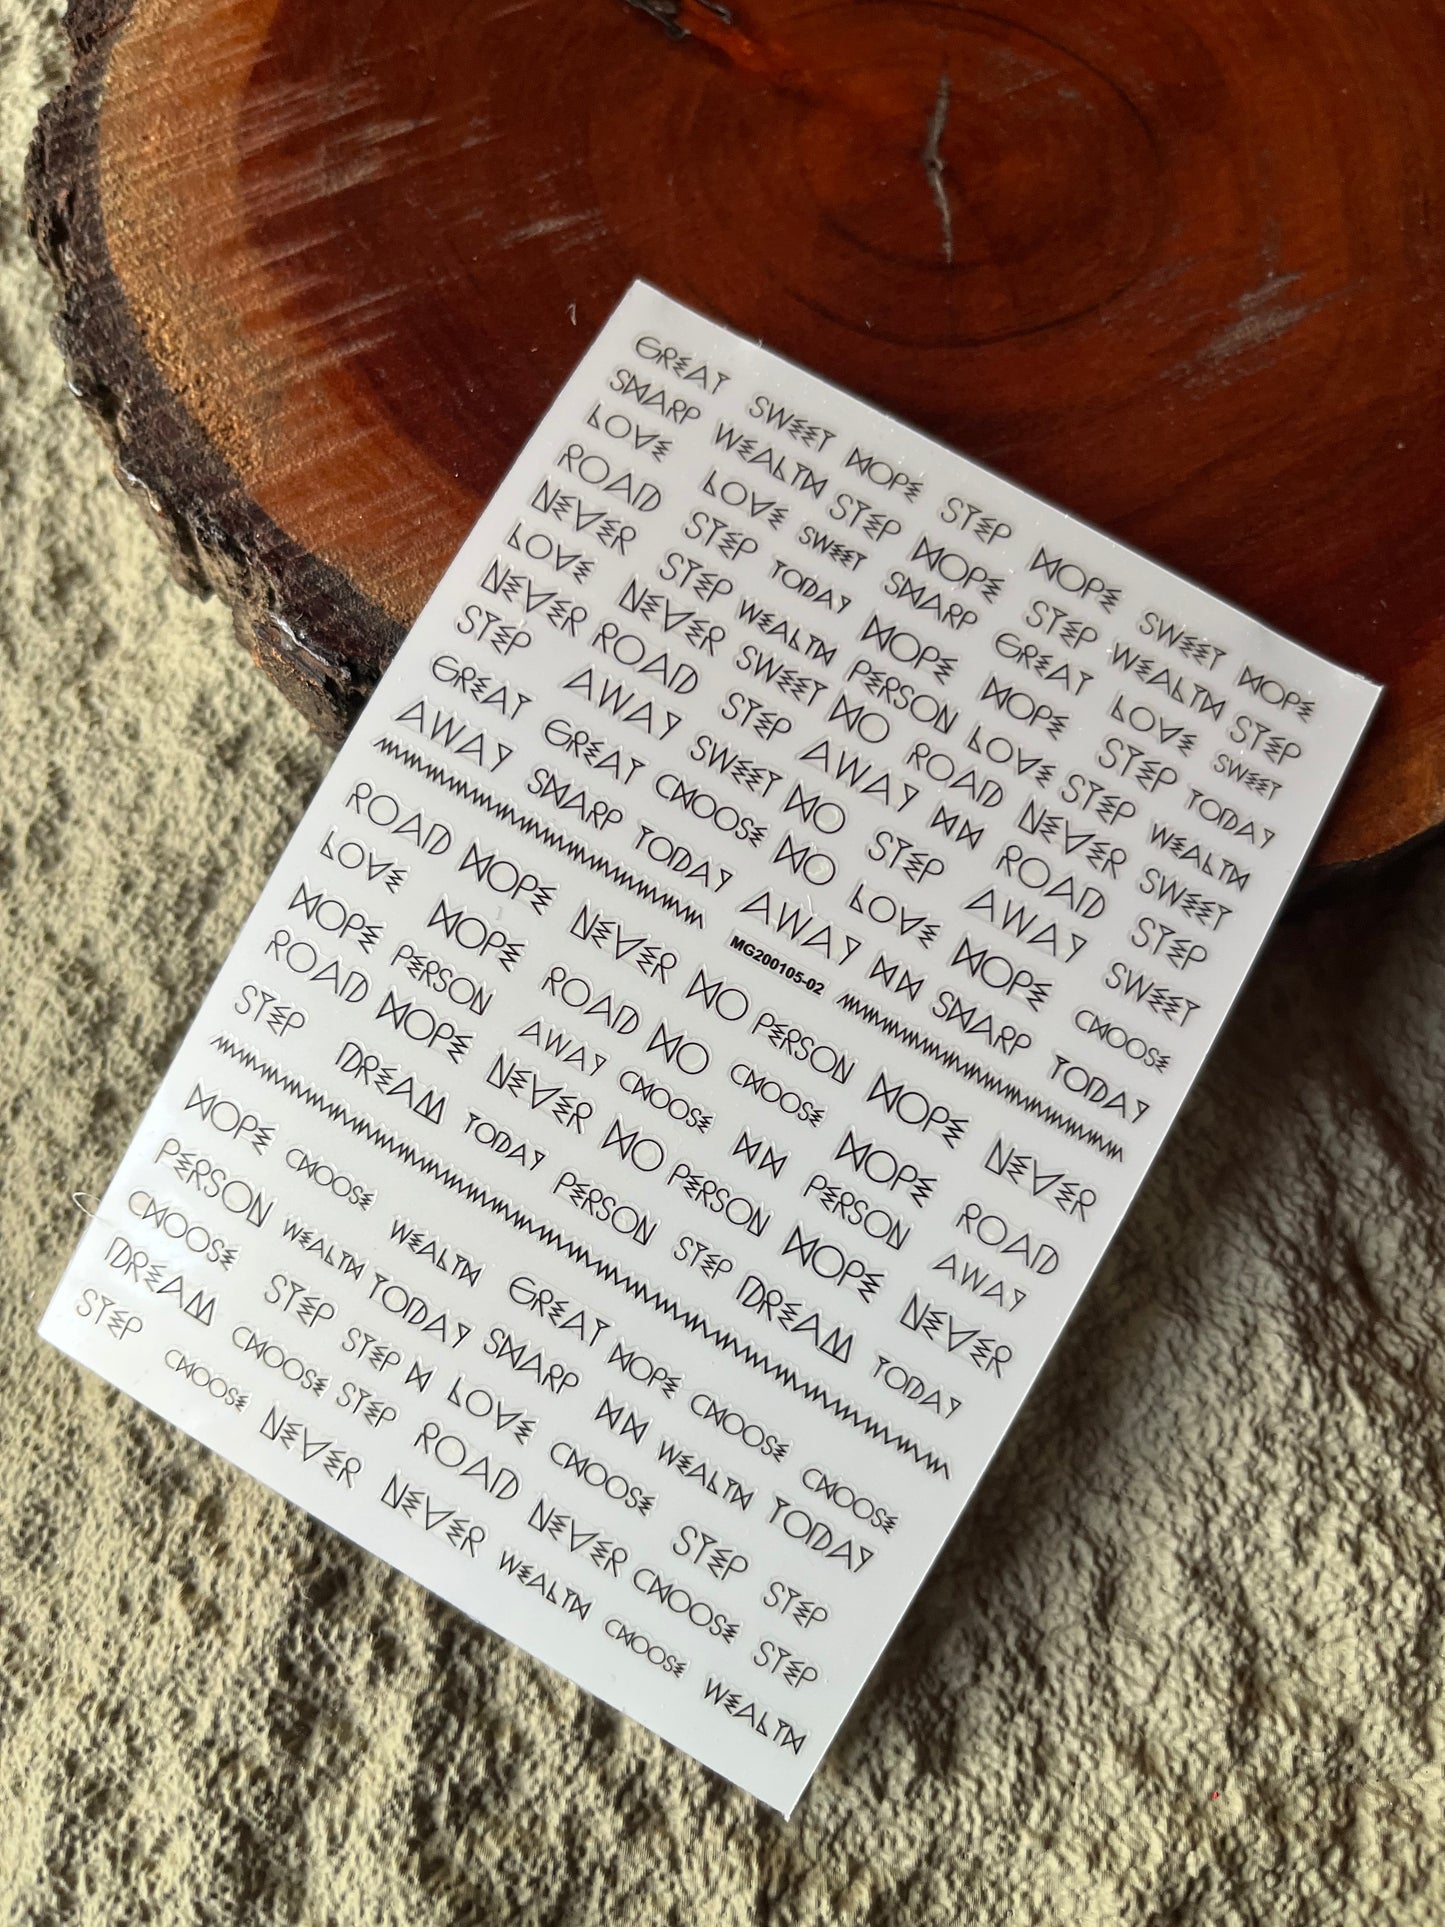 GREAT SWEET HOPE STEP HOPE SWEET HOPE
SHARP WEALTH STEP HOPE STEP WEALTH STEP
LOVE LOVE SWEET SHARP GREAT LOVE SWEET
ROAD STEP TODAY HOPE HOPE STEP TODAY
NEVER STEP WEALTH PERSON LOVE STEP WEALTH
LOVE NEVER SWEET HO ROAD NEVER SWEET
NEVER ROAD STEP AWAY HH ROAD STEP
STEP AWAY SWEET HO STEP AWAY SWEET
GREAT GREAT CHOOSE HO LOVE HOPE CHOOSE
AWAY SHARP TODAY AWAY HH SHARP TODAY
MG200105-02
ROAD HOPE NEVER HO PERSON HOPE NEVER
LOVE HOPE ROAD HO CHOOSE HOPE ROAD
HOPE PERSON AWAY CHOOSE HH PERSON AWAY
ROAD HOPE NEVER HO PERSON HOPE NEVER
STEP DREAM TODAY PERSON STEP DREAM TODAY
HOPE CHOOSE WEALTH GREAT HOPE CHOOSE CHOOSE
PERSON WEALTH TODAY SHARP HH WEALTH TODAY
CHOOSE STEP STEP H LOVE CHOOSE STEP STEP
DREAM CHOOSE STEP ROAD NEVER CHOOSE STEP
STEP CHOOSE NEVER NEVER WEALTH CHOOSE WEALTH